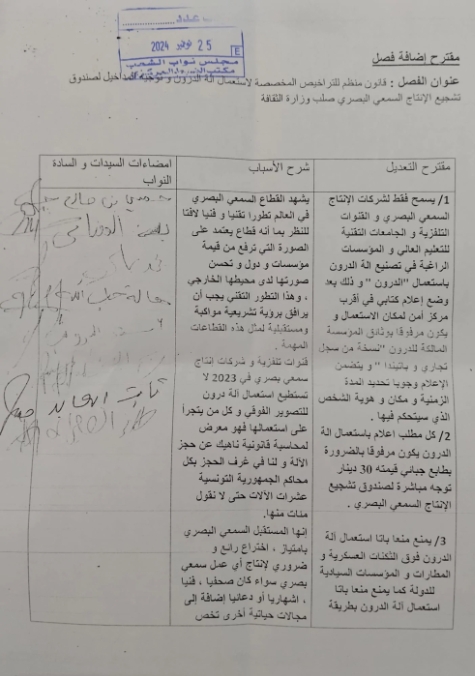 25 نوفمبر 2024
E
مجلس نواب الشعب
مقترح إضافة فصل
عنوان الفصل : قانون منظم للتراخيص المخصصة لاستعمال آلة الدرون و توجيه المداخيل لصندوق
تشجيع الإنتاج السمعي البصري صلب وزارة الثقافة
مقترح التعديل
1/ يسمح فقط لشركات الإنتاج
السمعي البصري و القنوات
التلفزية و الجامعات التقنية
للتعليم العالي و المؤسسات
الراغبة في تصنيع آلة الدرون
باستعمال "الدرون" و ذلك بعد
وضع إعلام كتابي في أقرب
مركز أمن لمكان الاستعمال و
يكون مرفوقا بوثائق المؤسسة
المالكة للدرون "نسخة من سجل
تجاري و باتيندا" و يتضمن
الإعلام وجوبا تحديد المدة
الزمنية و مكان و هوية الشخص
الذي سيتحكم فيها .
2/ كل مطلب اعلام باستعمال آلة
الدرون يكون مرفوقا بالضرورة
بطابع جبائي قيمته 30 دينار
توجه مباشرة لصندوق تشجيع
الإنتاج السمعي البصري .
3/ يمنع منعا باتا استعمال آلة
الدرون فوق الثكنات العسكرية و
المطارات و المؤسسات السيادية
للدولة كما يمنع منعا باتا
استعمال آلة الدرون بطريقة
شرح الأسباب
يشهد القطاع السمعي البصري
في العالم تطورا تقنيا و فنيا لافتا
للنظر بما أنه قطاع يعتمد على
الصورة التي ترفع من قيمة
مؤسسات و دول و تحسن
صورتها لدى محيطها الخارجي
، وهذا التطور التقني يجب أن
يرافق برؤية تشريعية مواكبة
ومستقبلية لمثل هذه القطاعات
المهمة .
قنوات تلفزية و شركات إنتاج
سمعي بصري في 2023 لا
تستطيع استعمال آلة درون
للتصوير الفوقي و كل من يتجرأ
على استعمالها فهو معرض
لمحاسبة قانونية ناهيك عن حجز
الآلة و لنا في غرف الحجز بكل
محاكم الجمهورية التونسية
عشرات الآلات حتى لا نقول
مئات منها.
إنها المستقبل السمعي البصري
بامتياز ، اختراع رائع و
ضروري لإنتاج أي عمل سمعي
بصري سواء كان صحفيا ، فنيا
، اشهاريا أو دعائيا إضافة إلى
مجالات حياتية أخرى تخص
امضاءات السيدات و السادة
النواب